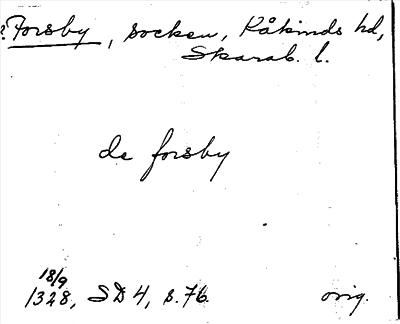 ?Forsby, socken, Kåkinds hd,
Skarab. l.
de forsby
18/9
1328, SD 4, s. 76. orig.